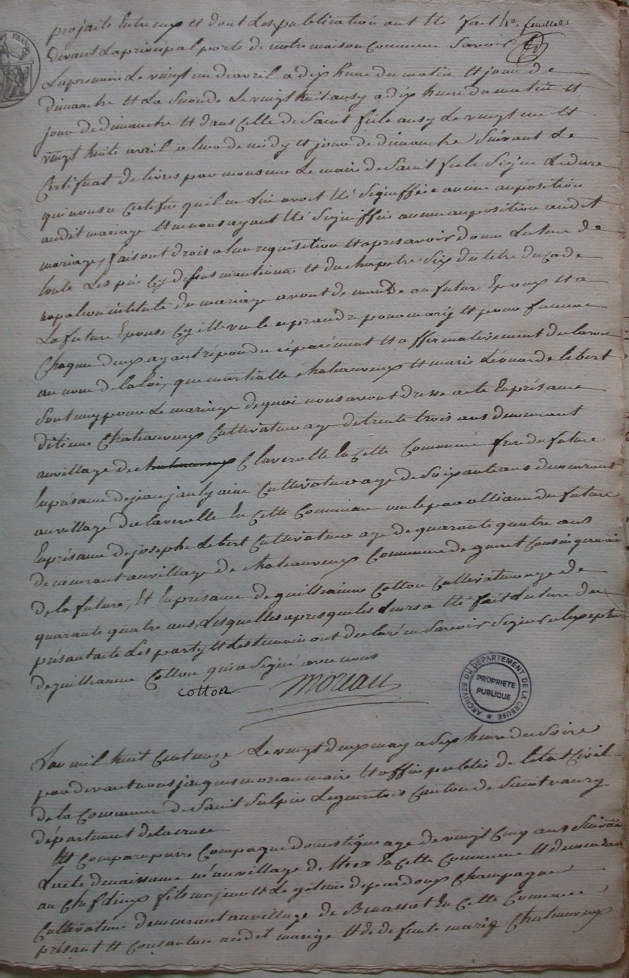 projaite Entreux et dont Les publication ont Eté fait 10e feuillet
devant La principal porte de notre maison Commune Savoir
La premiere Le vingt un de avril a dix heure du matin et jour de
dimanche et La seconde Le vingt huit ausy a dix heure du matin et
jour de dimanche et dans Celle de Saint fiele ausy Le vingt un et
vingt huite avril a heure de midy et jour de dimanche Suivant Le
Certificat de livres par monsieur Le maire de Saint fiele Signe Ledure
qui nous a Certifié qu'il ne Lui avoit Eté Signiffiée aucune aupositi̇on
audit mariage Et ne nous ayant Eté Signiffiée aucune aupositi̇on audit
mariage, faisont droit a leur requisition Et apres avoir donne Lecture de
toute Les piéces cy dessus mantionne et du chapitre Six du titre du Code
napoleon intitulé du mariage avont demandé au future Epoux Et a
La future Epouse Cy ille veule ce prandre pour mary Et pour famme
Chaqun deux ayant repondu séparément Et affirmativement declarons
au nom de la loi, que martialle chateauveux Et marie Léonarde lebert
Sont uny pour Le mariage de quoi nous avont dresse acte En présance
d'étienne Chateauveux Cultivateur age de trente trois ans demeurant
au village de Claverolle En Cette Commune frere du future
En présance de jean Cultivateur age de Soixante ans demeurant
au village de Laverolle En Cette Commune oncle par alliance du future
En présance de joseph Lebert Cultivateur age de quarante quatre ans
demeurant au village de chateauveux Commune de gueret Cousin germain
de la future, Et En présance de guilliaume Cotton Cultivateur age de
quarante quatre ans, Lesquelles apres qu'illes Leurs a Eté fait Lecture du
présant acte Les party Et Les temoins ont declaré ne Savoir Signer a Lexception
de guilliaume Cotton qui a Signé avec nous
cotton moreau
ARCHIVES DU DÉPARTEMENT DE LA CREUSE
PROPRIÉTÉ PUBLIQUE
L'an mil huit Cent onze Le vingt deux may a Six heure du Soire
par devant nous jaques moreau maire Et officie publie de Létat Civil
de la Commune de Saint Sulpice Le gueretois Canton de Saint vaury
département de la creuse
Et Compare pierre domestique age de vingt Cinq ans Suivan
Lacte de naissance né au village de En Cette Commune Et demeurant
au fils majeur Et Légitime de pardoux Champagne
Cultivateur demeurant au village de En Cette Commune
présant Et Consantan audit mariage Et de de funte marie Chateauveux